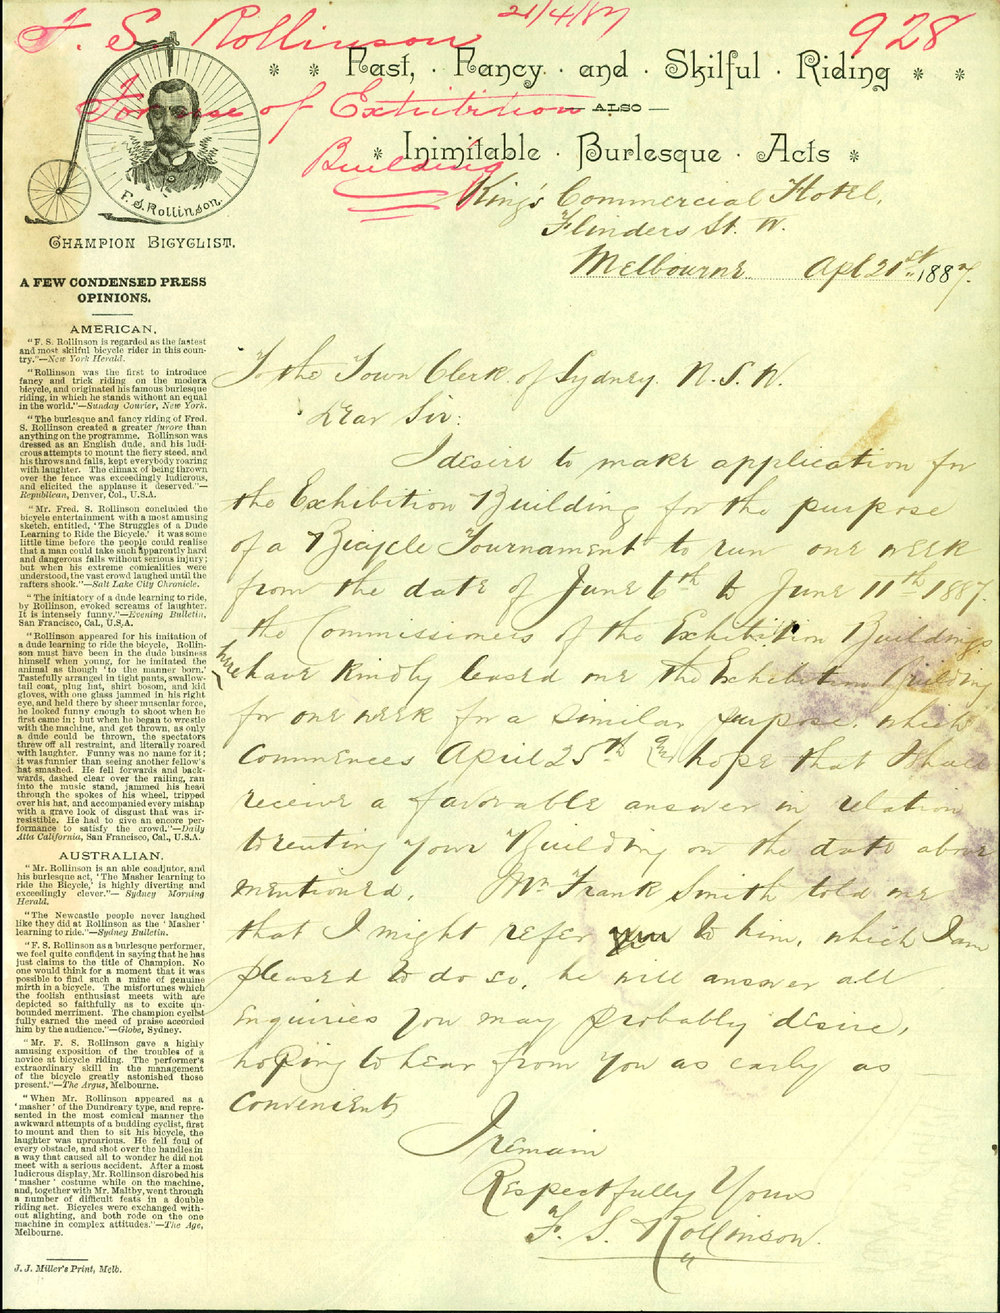 21/4/87
928
F. S. Rollinson
For use of Exhibition
Building
Fast, · Fancy · and · Skilful · Riding
— ALSO —
Inimitable · Burlesque · Acts
F. S. Rollinson.
CHAMPION BICYCLIST.
King's Commercial Hotel,
Flinders St. W.
Melbourne Apl 21st 1887.
To the Town Clerk of Sydney N.S.W.
Dear Sir:
I desire to make application for
the Exhibition Building for the purpose
of a Bicycle Tournament to run one week
from the date of June 6th to June 11th 1887.
the Commissioners of the Exhibition Buildings
here have kindly leased me the Exhibition Building
for one week for a similar purpose, which
commences April 25th and hope that I shall
receive a favorable answer in relation
to renting your Building on the date above
mentioned. Mr Frank Smith told me
that I might refer you to him, which I am
pleased to do so, he will answer all
enquiries you may probably desire,
hoping to hear from you as early as
convenient
I remain
Respectfully Yours
F. S. Rollinson.
A FEW CONDENSED PRESS
OPINIONS.
AMERICAN.
"F. S. Rollinson is regarded as the fastest
and most skilful bicycle rider in this coun-
try."—New York Herald.
"Rollinson was the first to introduce
fancy and trick riding on the modern
bicycle, and originated his famous burlesque
riding, in which he stands without an equal
in the world."—Sunday Courier, New York.
"The burlesque and fancy riding of Fred.
S. Rollinson created a greater furore than
anything on the programme. Rollinson was
dressed as an English dude, and his ludi-
crous attempts to mount the fiery steed, and
his throws and falls, kept everybody roaring
with laughter. The climax of being thrown
over the fence was exceedingly ludicrous,
and elicited the applause it deserved."—
Republican, Denver, Col., U.S.A.
"Mr. Fred. S. Rollinson concluded the
bicycle entertainment with a most amusing
sketch, entitled, 'The Struggles of a Dude
Learning to Ride the Bicycle.' it was some
little time before the people could realise
that a man could take such apparently hard
and dangerous falls without serious injury;
but when his extreme comicalities were
understood, the vast crowd laughed until the
rafters shook."—Salt Lake City Chronicle.
"The initiatory of a dude learning to ride,
by Rollinson, evoked screams of laughter.
It is intensely funny."—Evening Bulletin,
San Francisco, Cal., U.S.A.
"Rollinson appeared for his imitation of
a dude learning to ride the bicycle, Rollin-
son must have been in the dude business
himself when young, for he imitated the
animal as though 'to the manner born.'
Tastefully arranged in tight pants, swallow-
tail coat, plug hat, shirt bosom, and kid
gloves, with one glass jammed in his right
eye, and held there by sheer muscular force,
he looked funny enough to shoot when he
first came in; but when he began to wrestle
with the machine, and get thrown, as only
a dude could be thrown, the spectators
threw off all restraint, and literally roared
with laughter. Funny was no name for it;
it was funnier than seeing another fellow's
hat smashed. He fell forwards and back-
wards, dashed clear over the railing, ran
into the music stand, jammed his head
through the spokes of his wheel, tripped
over his hat, and accompanied every mishap
with a grave look of disgust that was ir-
resistible. He had to give an encore per-
formance to satisfy the crowd."—Daily
Alta California, San Francisco, Cal., U.S.A.
AUSTRALIAN.
"Mr. Rollinson is an able coadjutor, and
his burlesque act, 'The Masher learning to
ride the Bicycle,' is highly diverting and
exceedingly clever."— Sydney Morning
Herald.
"The Newcastle people never laughed
like they did at Rollinson as the 'Masher'
learning to ride."—Sydney Bulletin.
"F. S. Rollinson as a burlesque performer,
we feel quite confident in saying that he has
just claims to the title of Champion. No
one would think for a moment that it was
possible to find such a mine of genuine
mirth in a bicycle. The misfortunes which
the foolish enthusiast meets with are
depicted so faithfully as to excite un-
bounded merriment. The champion cyclist
fully earned the meed of praise accorded
him by the audience."—Globe, Sydney.
"Mr. F. S. Rollinson gave a highly
amusing exposition of the troubles of a
novice at bicycle riding. The performer's
extraordinary skill in the management
of the bicycle greatly astonished those
present."—The Argus, Melbourne.
"When Mr. Rollinson appeared as a
'masher' of the Dundreary type, and repre-
sented in the most comical manner the
awkward attempts of a budding cyclist, first
to mount and then to sit his bicycle, the
laughter was uproarious. He fell foul of
every obstacle, and shot over the handles in
a way that caused all to wonder he did not
meet with a serious accident. After a most
ludicrous display, Mr. Rollinson disrobed his
'masher' costume while on the machine,
and, together with Mr. Maltby, went through
a number of difficult feats in a double
riding act. Bicycles were exchanged with-
out alighting, and both rode on the one
machine in complex attitudes."—The Age,
Melbourne.
J. J. Miller's Print, Melb.